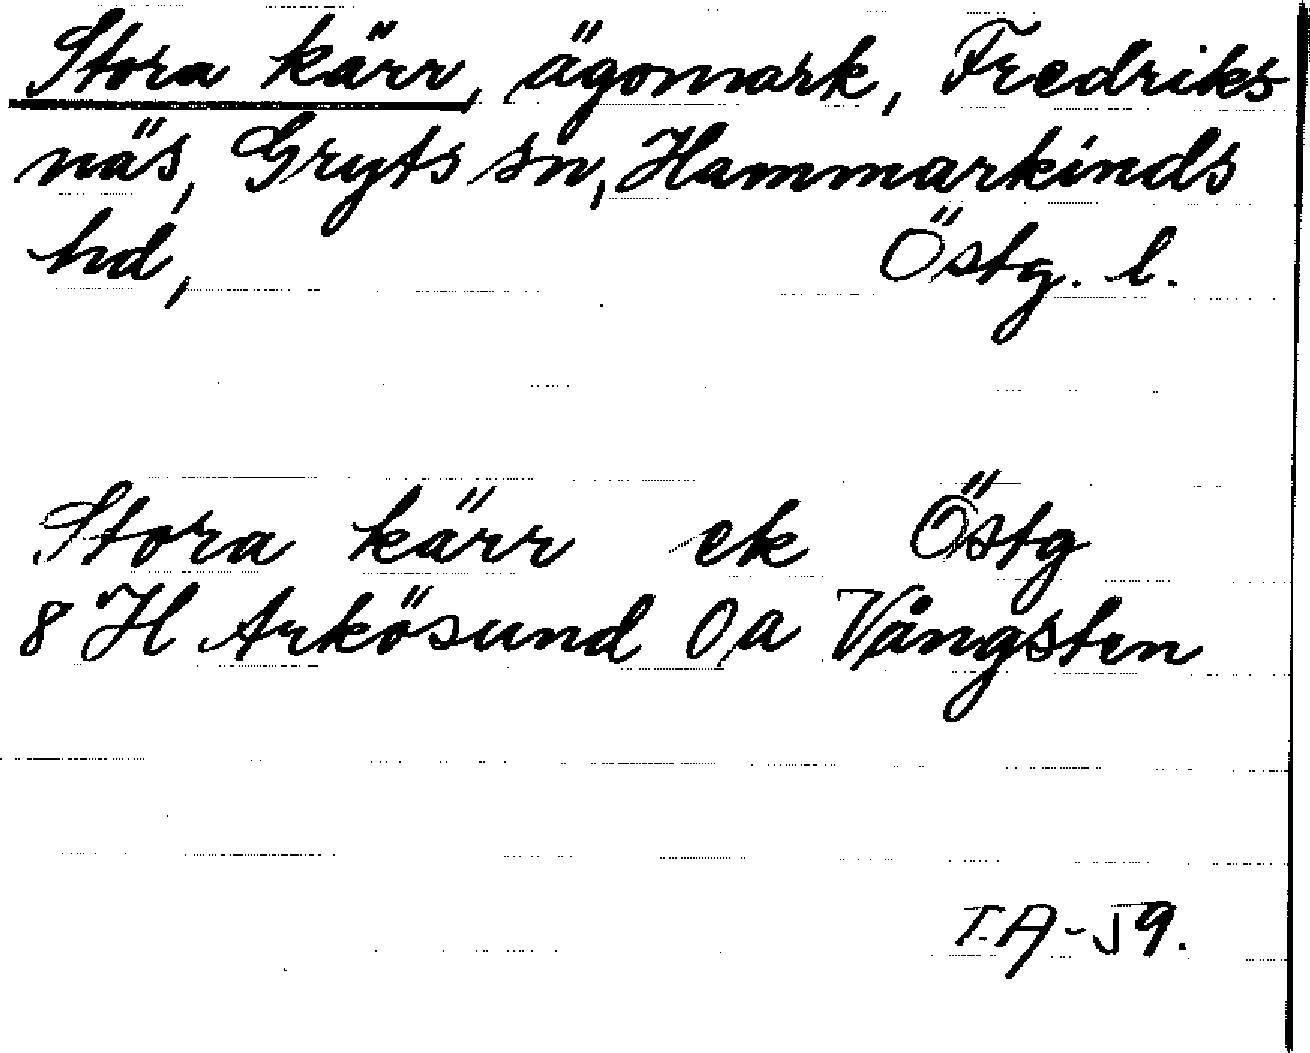 Stora kärr, ägomark, Fredriks
näs, Gryts sn, Hammarkinds
hd, Östg. l.
Stora kärr ek Östg
8 H Arkösund 0a Vångsten
T.A-59.